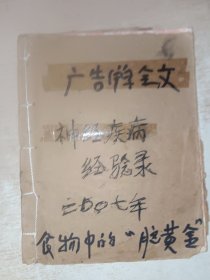 广告学全文
神经疾病
经验录
二〇〇七年
食物中的“脑黄金”